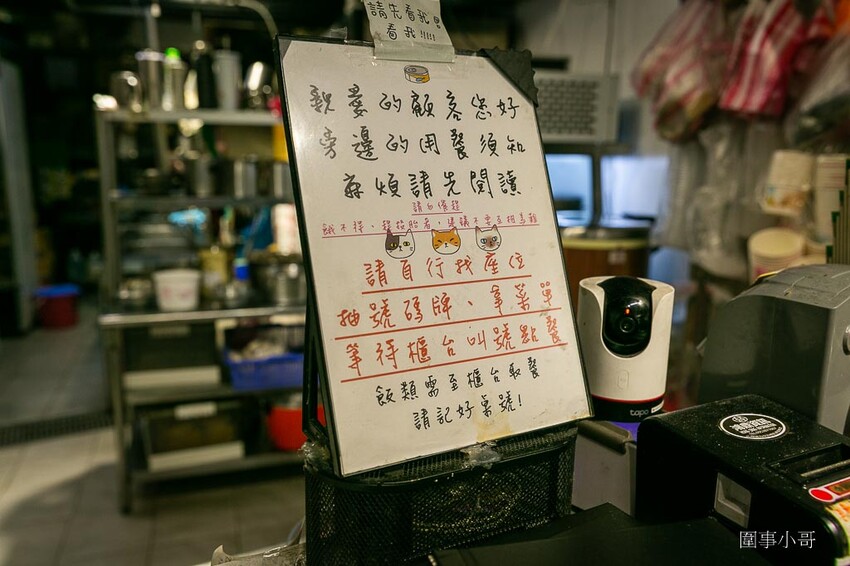 請先看我!
看我!!!!!
親愛的顧客您好
旁邊的用餐須知
麻煩請先閱讀
請自行找座位
抽號碼牌、拿菜單
等待櫃台叫號點餐
飯類需至櫃台取餐
請記好桌號!
tapo
圍事小哥